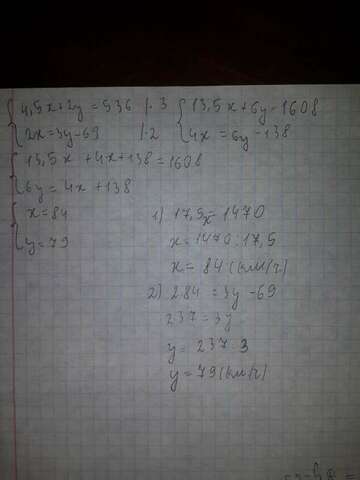 4,5x+2y=536 |·3
2x=3y-69 |·2
13,5x+6y=1608
4x=6y-138
13,5x+4x+138=1608
6y=4x+138
x=84
y=79
1) 17,5x=1470
x=1470:17,5
x=84 (км/ч)
2) 2·84=3y-69
237=3y
y=237:3
y=79 (км/ч)